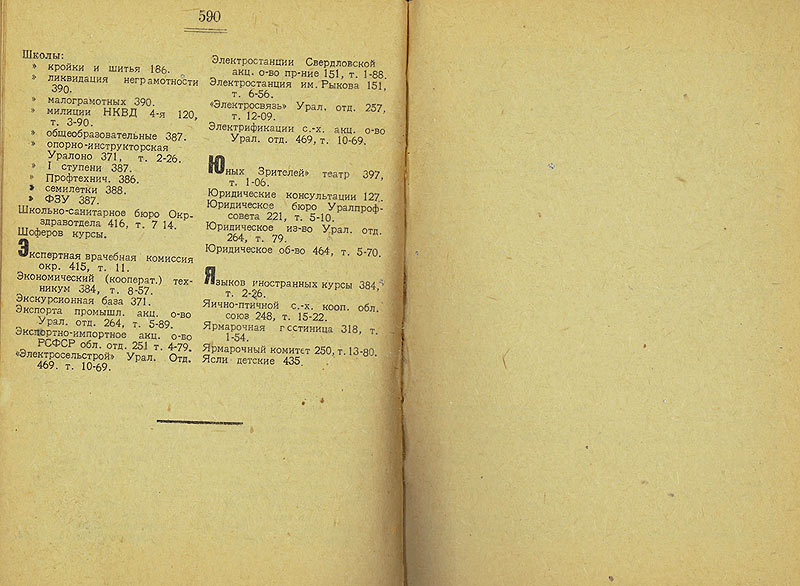 590
Школы:
» кройки и шитья 186.
» ликвидация неграмотности
390.
» малограмотных 390.
» милиции НКВД 4-я 120,
т. 3-90.
» общеобразовательные 387.
» опорно-инструкторская
Уралоно 371, т. 2-26.
» I ступени 387.
» Профтехнич. 386.
» семилетки 388.
» ФЗУ 387.
Школьно-санитарное бюро Окр-
здравотдела 416, т. 7 14.
Шоферов курсы.
Экспертная врачебная комиссия
окр. 415, т. 11.
Экономический (кооперат.) тех-
никум 384, т. 8-57.
Экскурсионная база 371.
Экспорта промышл. акц. о-во
Урал. отд. 264, т. 5-89.
Экспортно-импортное акц. о-во
РСФСР обл. отд. 251 т. 4-79.
«Электросельстрой» Урал. Отд.
469. т. 10-69.
Электростанции Свердловской
акц. о-во пр-ние 151, т. 1-88.
Электростанция им. Рыкова 151,
т. 6-56.
«Электросвязь» Урал. отд. 257,
т. 12-09.
Электрификации с.-х. акц. о-во
Урал. отд. 469, т. 10-69.
Юных Зрителей» театр 397,
т. 1-06.
Юридические консультации 127.
Юридическое бюро Уралпроф-
совета 221, т. 5-10.
Юридическое из-во Урал. отд.
264, т. 79.
Юридическое об-во 464, т. 5-70.
Языков иностранных курсы 384,
т. 2-26.
Яично-птичной с.-х. кооп. обл.
союз 248, т. 15-22.
Ярмарочная гостиница 318, т.
1-54.
Ярмарочный комитет 250, т. 13-80.
Ясли детские 435.